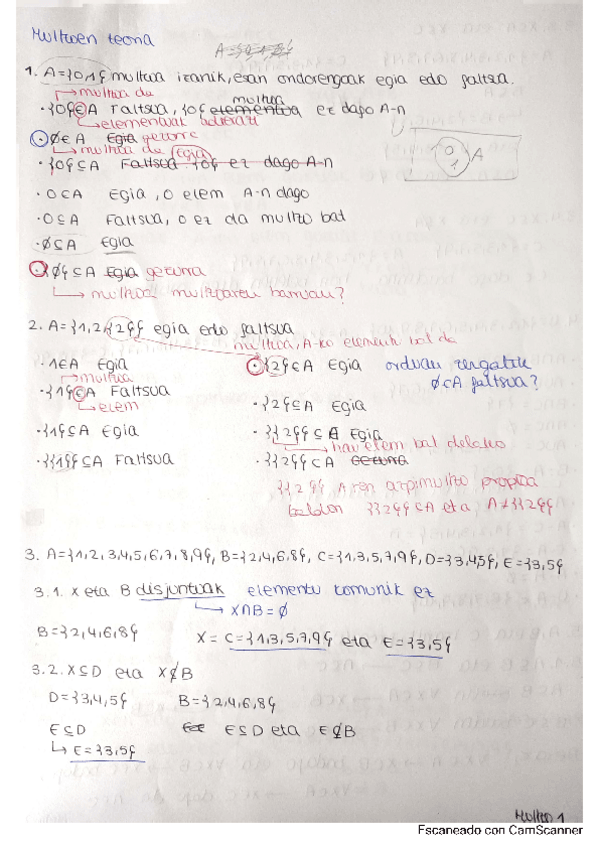 Multzoen teoria
1. A={0,1} multzoa izanik, esan ondorengoak egia edo faltsua.
→ multzoa da
· {0}∈A Faltsua, {0} elementua multzoa ez dago A-n
→ elementuat
· ∅∈A Egia gezurra
→ multzoa da Egia
· {0}⊆A Faltsua {0} ez dago A-n
0 1 A
· 0∈A Egia, 0 elem A-n dago
· 0⊆A Faltsua, 0 ez da multzo bat
· ∅⊆A Egia
· {∅}⊆A Egia gezurra
→ multzoa multzoaren barruan?
2. A={1,2,{2}} egia edo faltsua
multzoa, A-ko elementu bat da
· 1∈A Egia
· {2}∈A Egia orduan zergatik ∅∈A faltsua?
→ multzoa
· {1}∈A Faltsua
→ elem
· {2}⊆A Egia
· {1}⊆A Egia
· {{2}}⊆A Egia
→ elem bat delako
· {{1}}⊆A Faltsua
· {{2}}⊂A Gezurra
{{2}} A-ren azpimultzo propioa
baldin {{2}}⊆A eta A≠{{2}}
3. A={1,2,3,4,5,6,7,8,9}, B={2,4,6,8}, C={1,3,5,7,9}, D={3,4,5}, E={3,5}
3.1. X eta B disjuntuak elementu komunik ez
→ X∩B=∅
B={2,4,6,8} X=C={1,3,5,7,9} eta E={3,5}
3.2. X⊆D eta X⊄B
D={3,4,5} B={2,4,6,8}
E⊆D E⊆D eta E⊄B
→ E={3,5}
Multzo 1
Escaneado con CamScanner